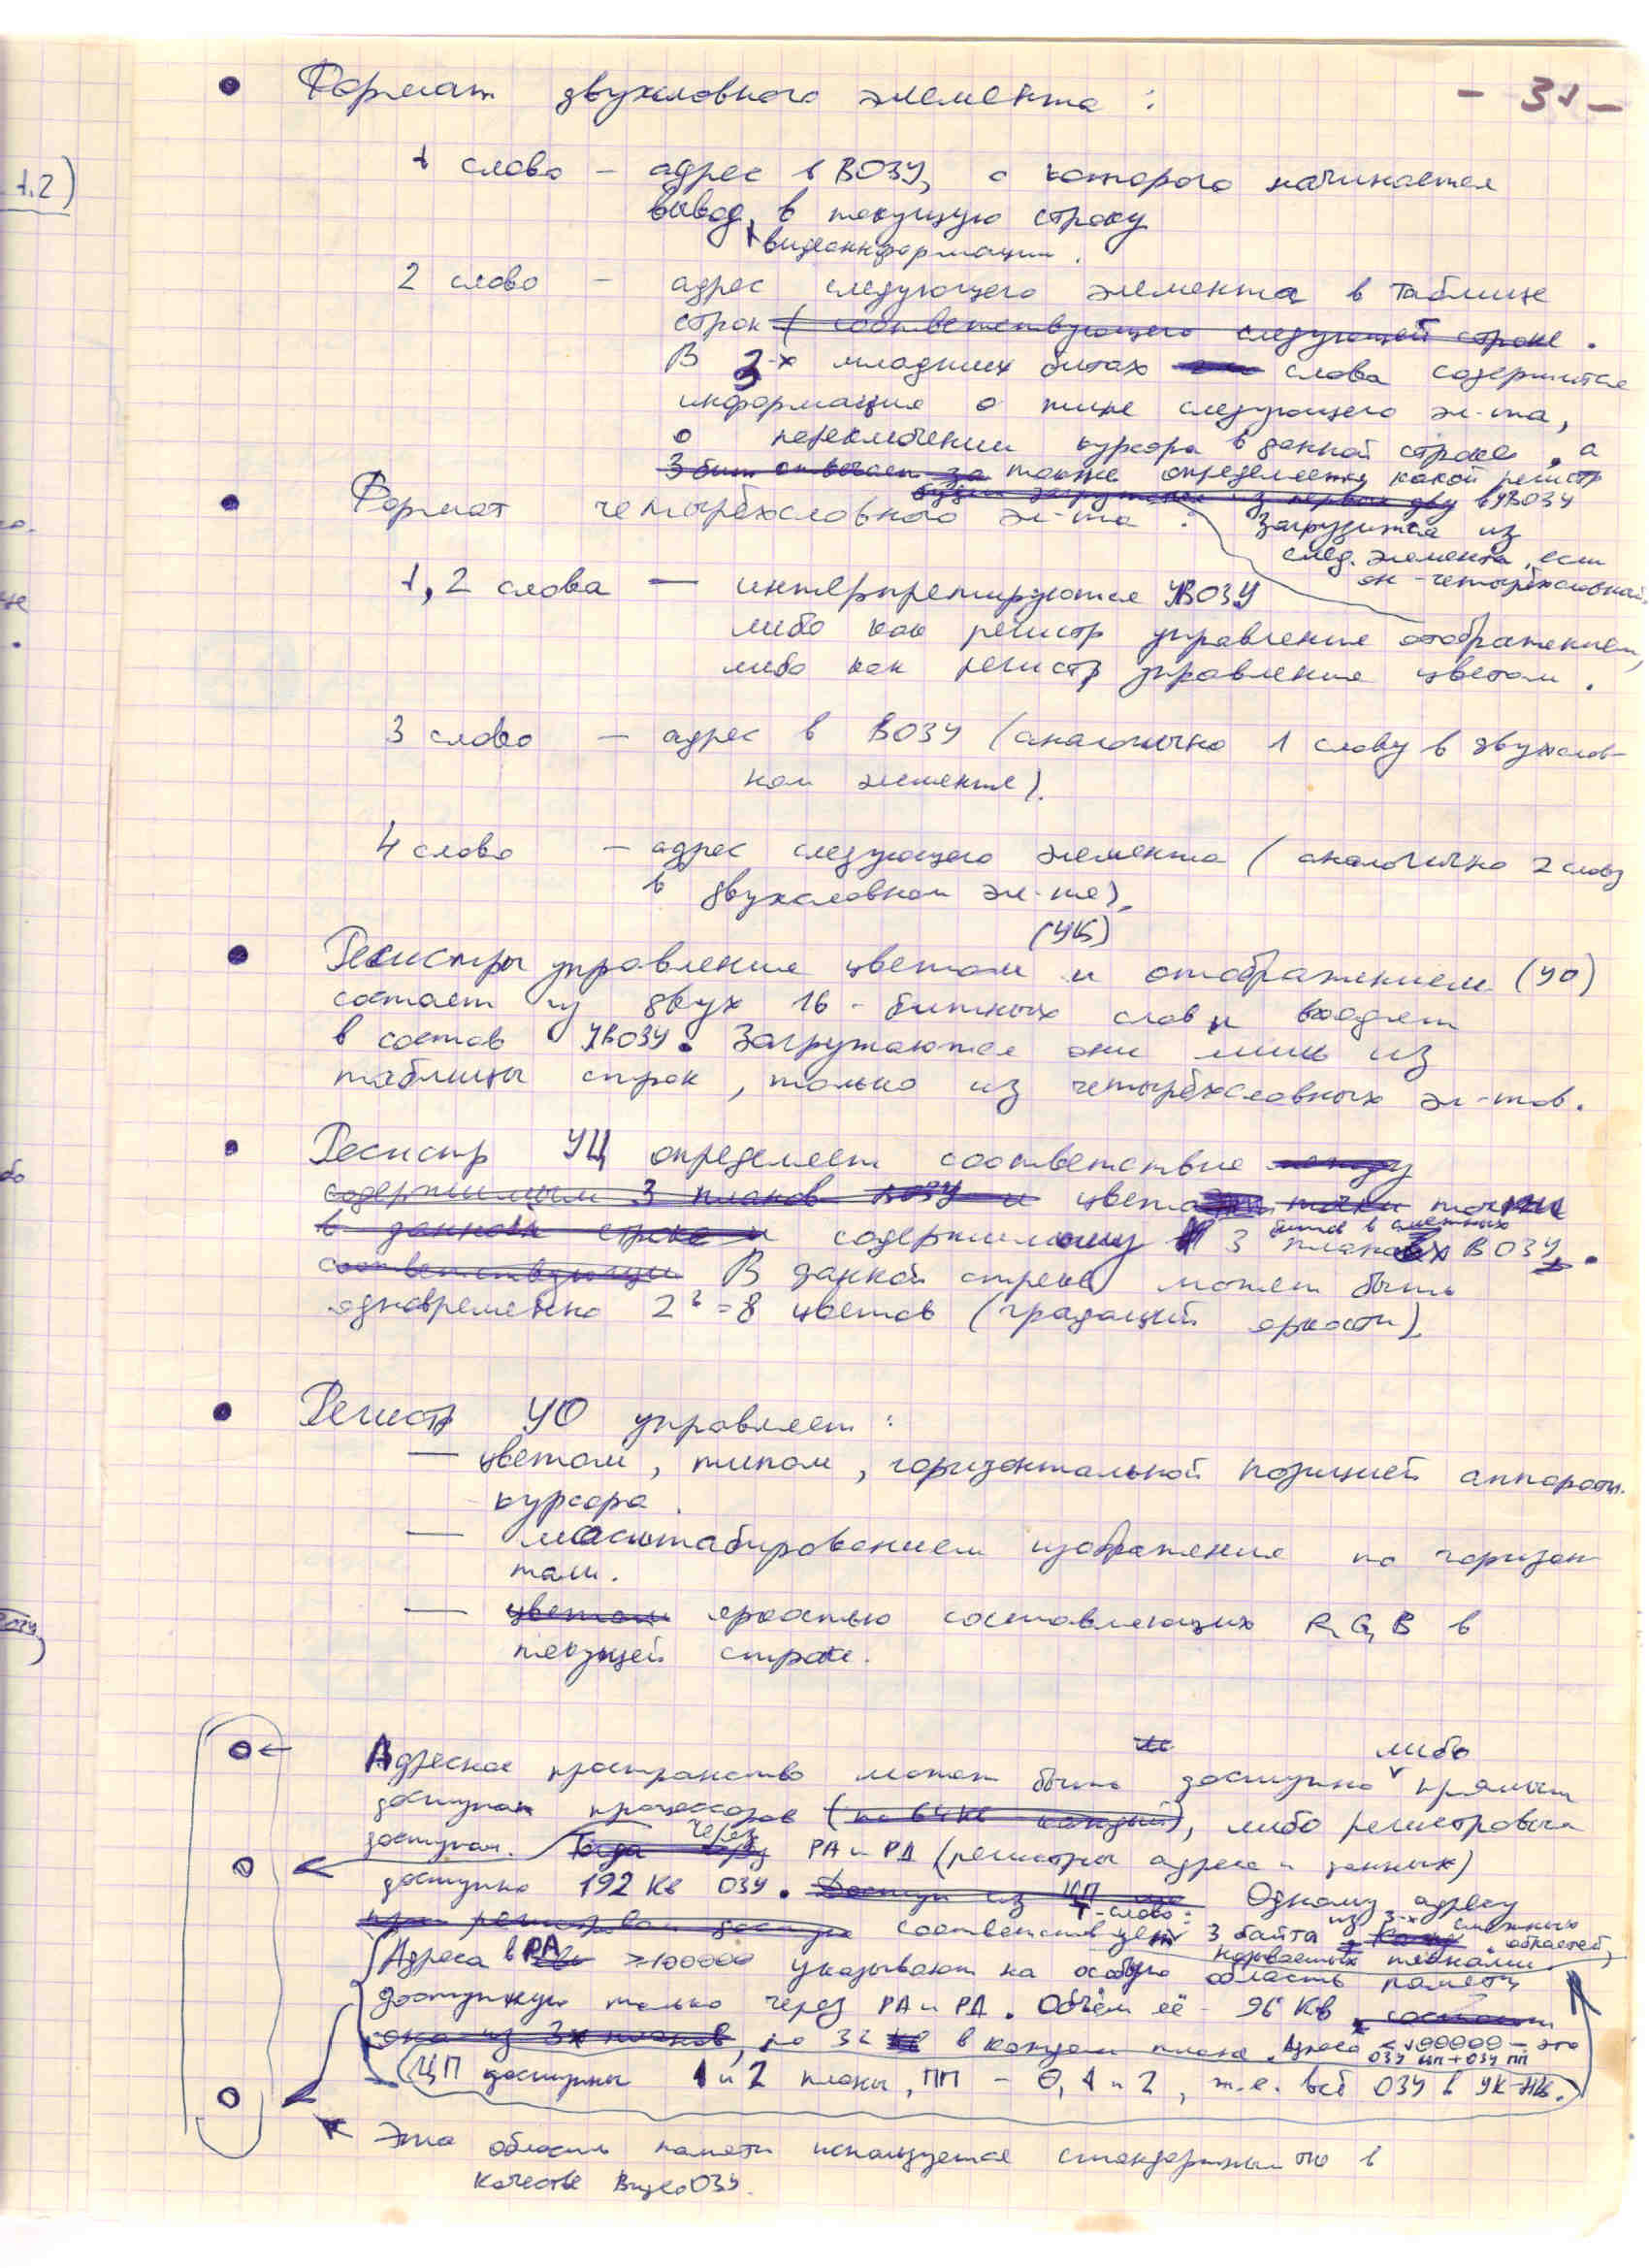 - 31 -
• Формат двухсловного элемента :
1 слово – адрес в ВОЗУ, с которого начинается
вывод в текущую строку
видеоинформации.
2 слово – адрес следующего элемента в таблице
строк ( соответствующего следующей строке .
В 3-х младших битах слова содержится
информация о типе следующего эл-та,
о переключении курсора в данной строке, а
3 бит отвечает за также определяется какой регистр
будет загружаться из первых двух в УВОЗУ
• Формат четырёхсловного эл-та : загрузится из
след. элемента, если
он - четырёхсловный.
1, 2 слова — интерпретируются УВОЗУ
либо как регистр управления отображением,
либо как регистр управления цветом.
3 слово – адрес в ВОЗУ (аналогично 1 слову в двухслов-
ном элементе).
4 слово – адрес следующего элемента (аналогично 2 слову
в двухсловном эл-те).
(УЦ)
• Регистры управления цветом и отображением (УО)
состоят из двух 16-битных слов и входят
в состав УВОЗУ. Загружаются они лишь из
таблицы строк, только из четырёхсловных эл-тов.
• Регистр УЦ определяет соответствие между
содержимым 3 планов ВОЗУ и цвета точки точки
в данной строке и содержимому 3 битов в смежных планах ВОЗУ.
соответствующи В данной строке может быть
одновременно 2³=8 цветов (градаций яркости)
• Регистр УО управляет :
— цветом, типом, горизонтальной позицией аппаратн.
курсора.
— масштабированием изображения по горизон-
тали.
— цветом яркостью составляющих R, G, B в
текущей строке.
Адресное пространство может быть доступно либо прямым
доступом процессоров (по 64 Кб каждый), либо регистровым
доступом. Тогда через РА и РД (регистры адреса и данных)
доступно 192 Кв ОЗУ. Доступ из ЦП Одному адресу
при регистровом доступе -слово: соответствует 3 байта из 3-х смежных областей,
называемых планами.
Адреса в РА ≥100000 указывают на особую область памяти
доступную только через РА и РД. Объём её - 96 Кв, состоит
она из 3х планов, по 32 Кв в каждом плане. Адреса <100000 – это
ОЗУ ЦП + ОЗУ ПП
ЦП доступны 1 и 2 планы, ПП – 0, 1 и 2, т.е. всё ОЗУ в УК-НЦ.
Эта область памяти используется стандартным ПО в
качестве ВидеоОЗУ.
1.2)